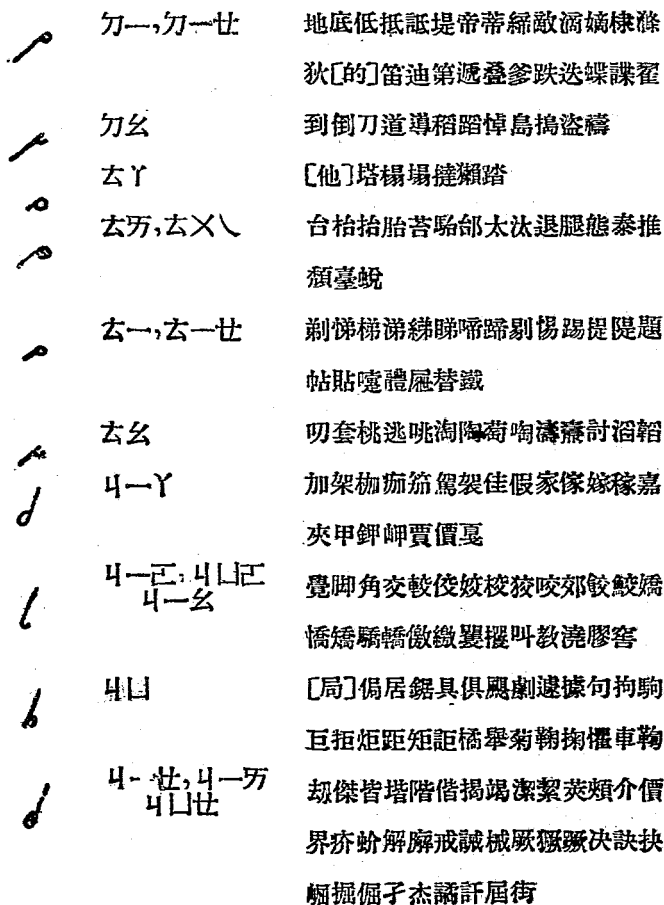 ㄉㄧ,ㄉㄧㄝ 地底低抵詆堤帝蒂締敵滴嫡棣滌
狄[的]笛迪第遞疊爹跌迭蝶諜翟
ㄉㄠ 到倒刀道導稻蹈悼島搗盜禱
ㄊㄚ [他]塔榻塌撻獺踏
ㄊㄞ,ㄊㄨㄟ 台枱抬胎苔駘邰太汰退腿態泰推
頹臺蛻
ㄊㄧ,ㄊㄧㄝ 剃悌梯涕綈睇啼蹄剔惕踢提隄題
帖貼嚏體屜替鐵
ㄊㄠ 叨套桃逃咷淘陶萄啕濤燾討滔韜
ㄐㄧㄚ 加架枷痂笳駕袈佳假家傢嫁稼嘉
夾甲鉀岬賈價戛
ㄐㄧㄛ,ㄐㄩㄛ
ㄐㄧㄠ 覺脚角交較佼姣校狡咬郊鉸鮫嬌
憍矯驕轎儌繳攫叫敎澆膠窖
ㄐㄩ [局]侷居鋸具俱颶劇遽據句拘駒
巨拒炬距矩詎橘舉菊鞠掬懼車鞫
ㄐㄧㄝ,ㄐㄧㄞ
ㄐㄩㄝ 刼傑皆堦階偕揭竭潔絜莢頰介價
界疥蚧解廨戒誡械厥獗蹶决訣抉
崛掘倔孑杰譎訐屆街